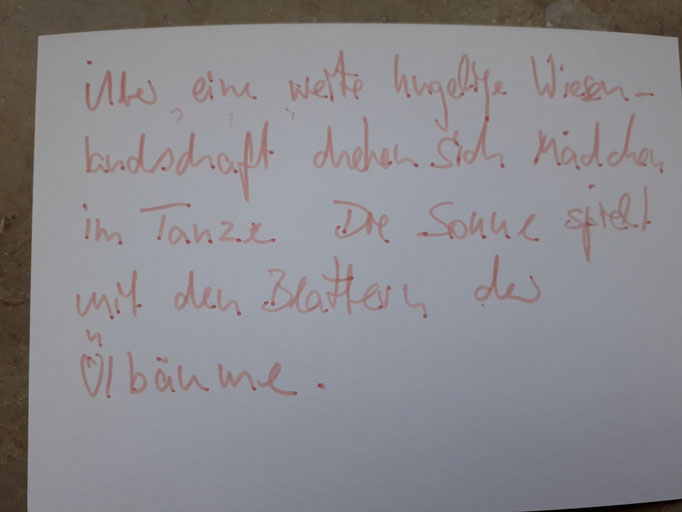 Über eine weite hugelige Wiesen-
landschaft drehen sich Mädchen
im Tanze Die Sonne spielt
mit den Blättern der
Ölbäume.